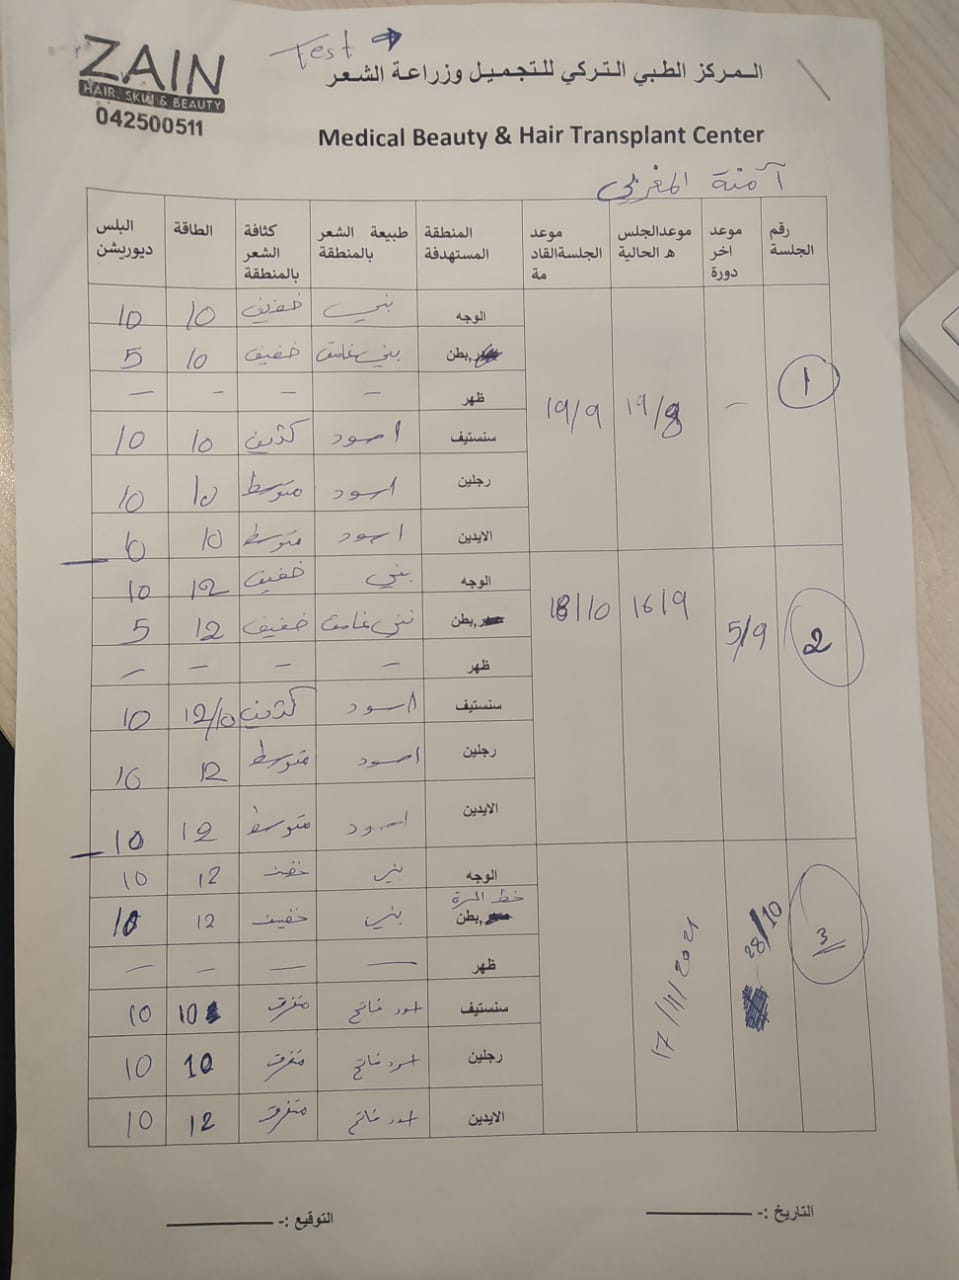 ZAIN
HAIR, SKIN & BEAUTY
042500511
Test →
المركز الطبي التركي للتجميل وزراعة الشعر
Medical Beauty & Hair Transplant Center
آمنة المغربي
رقم الجلسة | موعد اخر دورة | موعدالجلسه الحالية | موعد الجلسةالقادمة | المنطقة المستهدفة | طبيعة الشعر بالمنطقة | كثافة الشعر بالمنطقة | الطاقة | البلس ديوريشن
1 | – | 19/8 | 19/9 | الوجه | بني | خفيف | 10 | 10
بطن | بني غامق | خفيف | 10 | 5
ظهر | – | – | – | –
سنستيف | اسود | كثيف | 10 | 10
رجلين | اسود | متوسط | 10 | 10
الايدين | اسود | متوسط | 10 | 10
2 | 5/9 | 16/9 | 18/10 | الوجه | بني | خفيف | 12 | 10
بطن | بني غامق | خفيف | 12 | 5
ظهر | – | – | – | –
سنستيف | اسود | كثيف | 12/10 | 10
رجلين | اسود | متوسط | 12 | 10
الايدين | اسود | متوسط | 12 | 10
3 | 28/10 | 17/11/2021 | الوجه | بني | خفيف | 12 | 10
خط السرة
بطن | بني | خفيف | 12 | 10
ظهر | – | – | – | –
سنستيف | اسود فاتح | متفرق | 10 | 10
رجلين | اسود فاتح | متفرق | 10 | 10
الايدين | اسود فاتح | متفرق | 12 | 10
التاريخ :- ــــــــــــ
التوقيع :- ــــــــــــ